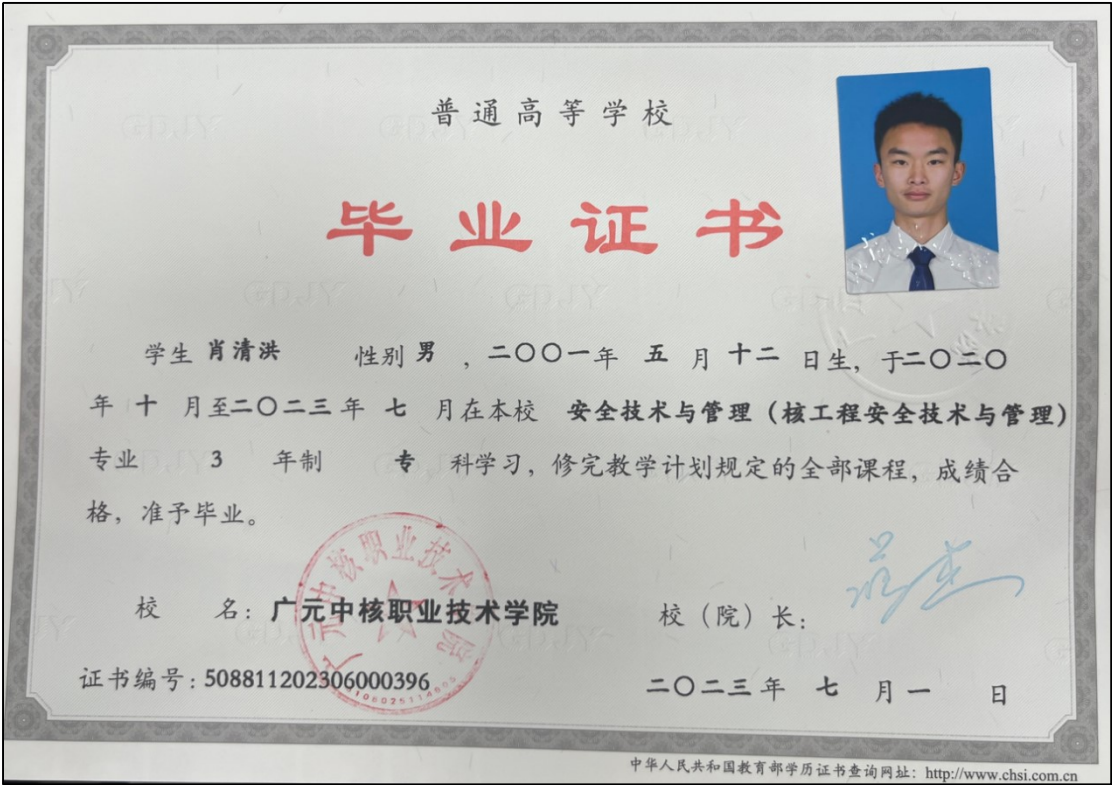 普通高等学校
毕业证书
学生 肖清洪 性别 男 ，二〇〇一年 五 月 十二 日生，于二〇二〇
年 十 月至二〇二三年 七 月在本校 安全技术与管理（核工程安全技术与管理）
专业 3 年制 专 科学习，修完教学计划规定的全部课程，成绩合
格，准予毕业。
校 名：广元中核职业技术学院
校（院）长：
证书编号：508811202306000396
二〇二三年 七 月一 日
广元中核职业技术学院
中华人民共和国教育部学历证书查询网址：http://www.chsi.com.cn